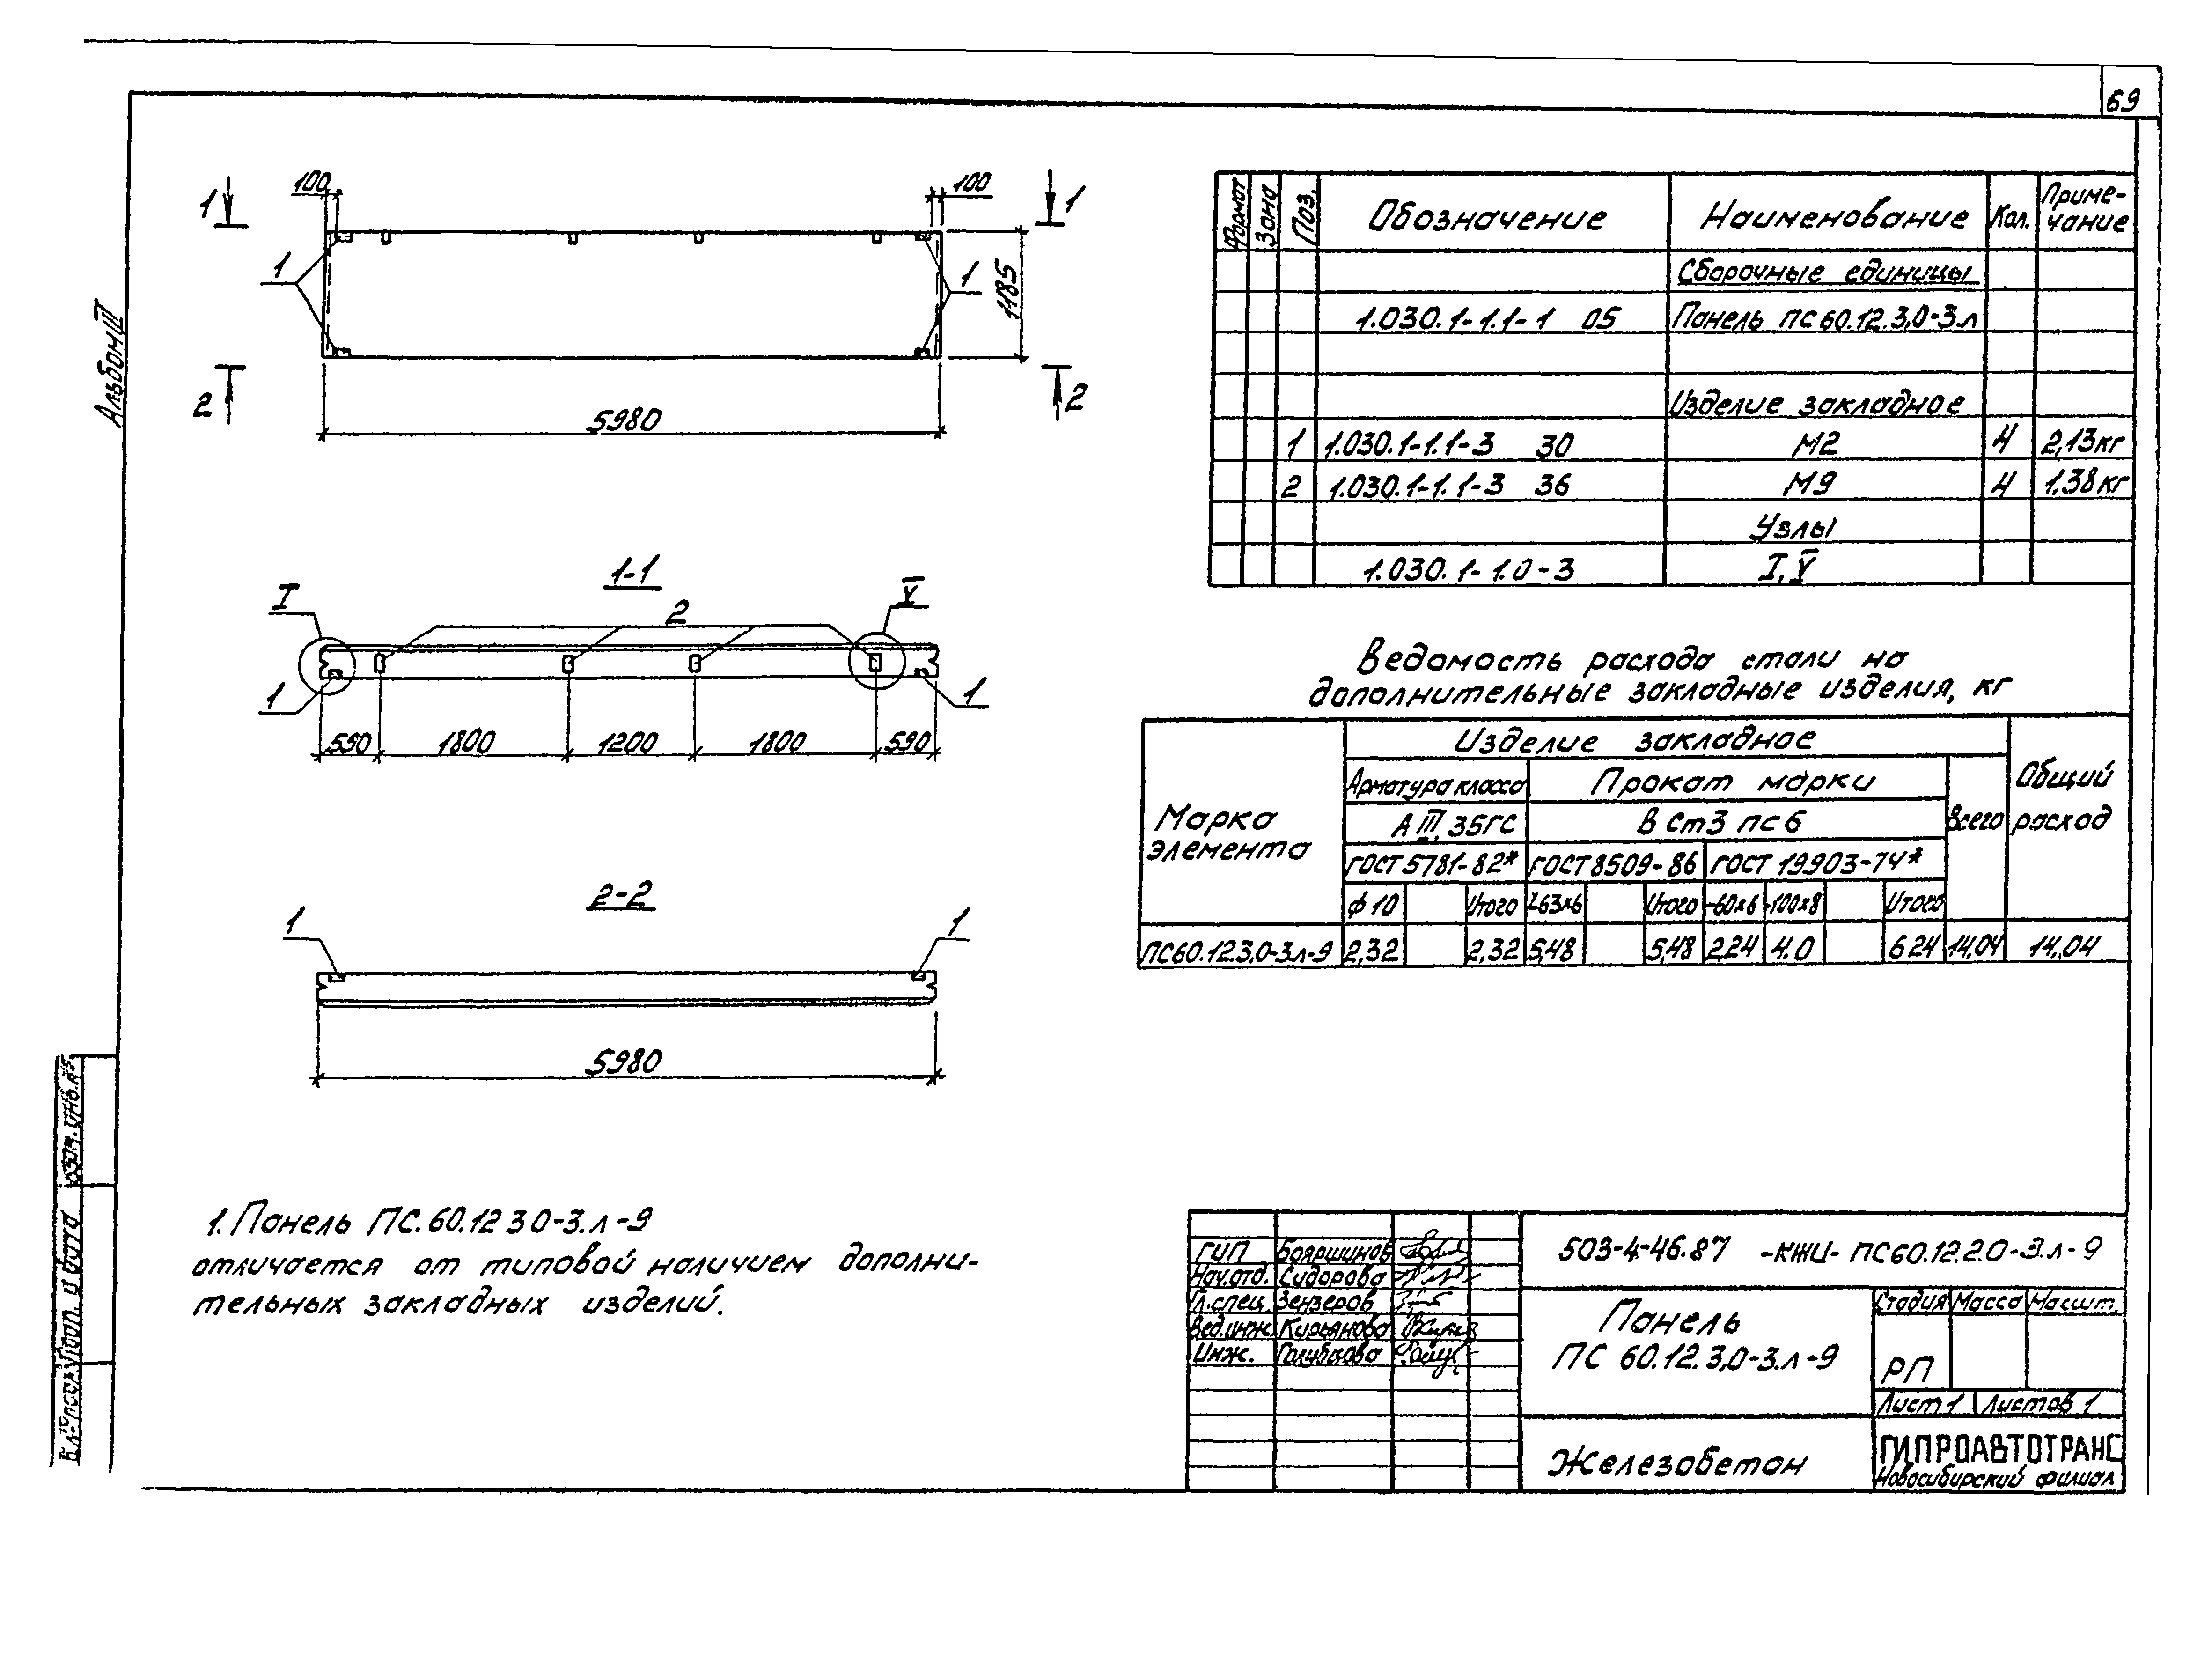 69
Альбом III
1 100 100 1
1 1
1185
2 2
5980
1-1
I 2 V
1 1
590 1800 1200 1800 590
2-2
1 1
5980
1. Панель ПС.60.12 3 0-3.л-9
отличается от типовой наличием дополни-
тельных закладных изделий.
Формат Зона Поз. Обозначение Наименование Кол. Приме-
чание
Сборочные единицы
1.030.1-1.1-1 05 Панель ПС 60.12.3,0-3.л
Изделие закладное
1 1.030.1-1.1-3 30 М2 4 2,13кг
2 1.030.1-1.1-3 36 М9 4 1,38кг
Узлы
1.030.1-1.0-3 I, V
Ведомость расхода стали на
дополнительные закладные изделия, кг
Марка
элемента
Изделие закладное
Арматура класса Прокат марки
А III, 35ГС В Ст3 пс 6
Всего
Общий
расход
ГОСТ 5781-82* ГОСТ 8509-86 ГОСТ 19903-74*
ф10 Итого L63х6 Итого -60х6 -100х8 Итого
ПС60.12.3,0-3л-9 2,32 2,32 5,48 5,48 2,24 4.0 6 24 14,04 14,04
ГИП Бояршинов
Нач.отд. Сидорова
Гл.спец. Зензеров
Вед.инж. Кирьянова
Инж.
503-4-46.87 -КЖИ- ПС60.12.2.0-3.л-9
Панель
ПС 60.12.3,0-3.л-9
Стадия Масса Масшт.
РП
Лист 1 Листов 1
Железобетон
ГИПРОАВТОТРАНС
Новосибирский филиал
Подп. и дата